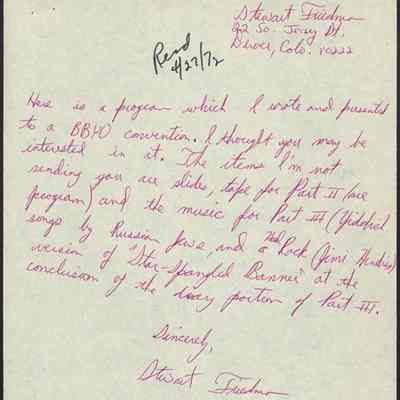 Stewart Friedman
922 So. Jersey St.
Denver, Colo. 80222
Recd
4/27/72
Here is a program which I wrote and presented
to a BBYO convention. I thought you may be
interested in it. The items I'm not
sending you are slides, tape for Part II (see
program) and the music for Part III (Yiddish
songs by Russian Jews, and a Rock (Jimi Hendrix)
version of "Star-Spangled Banner" at the
conclusion of the portion of Part III.
Sincerely,
Stewart Friedman